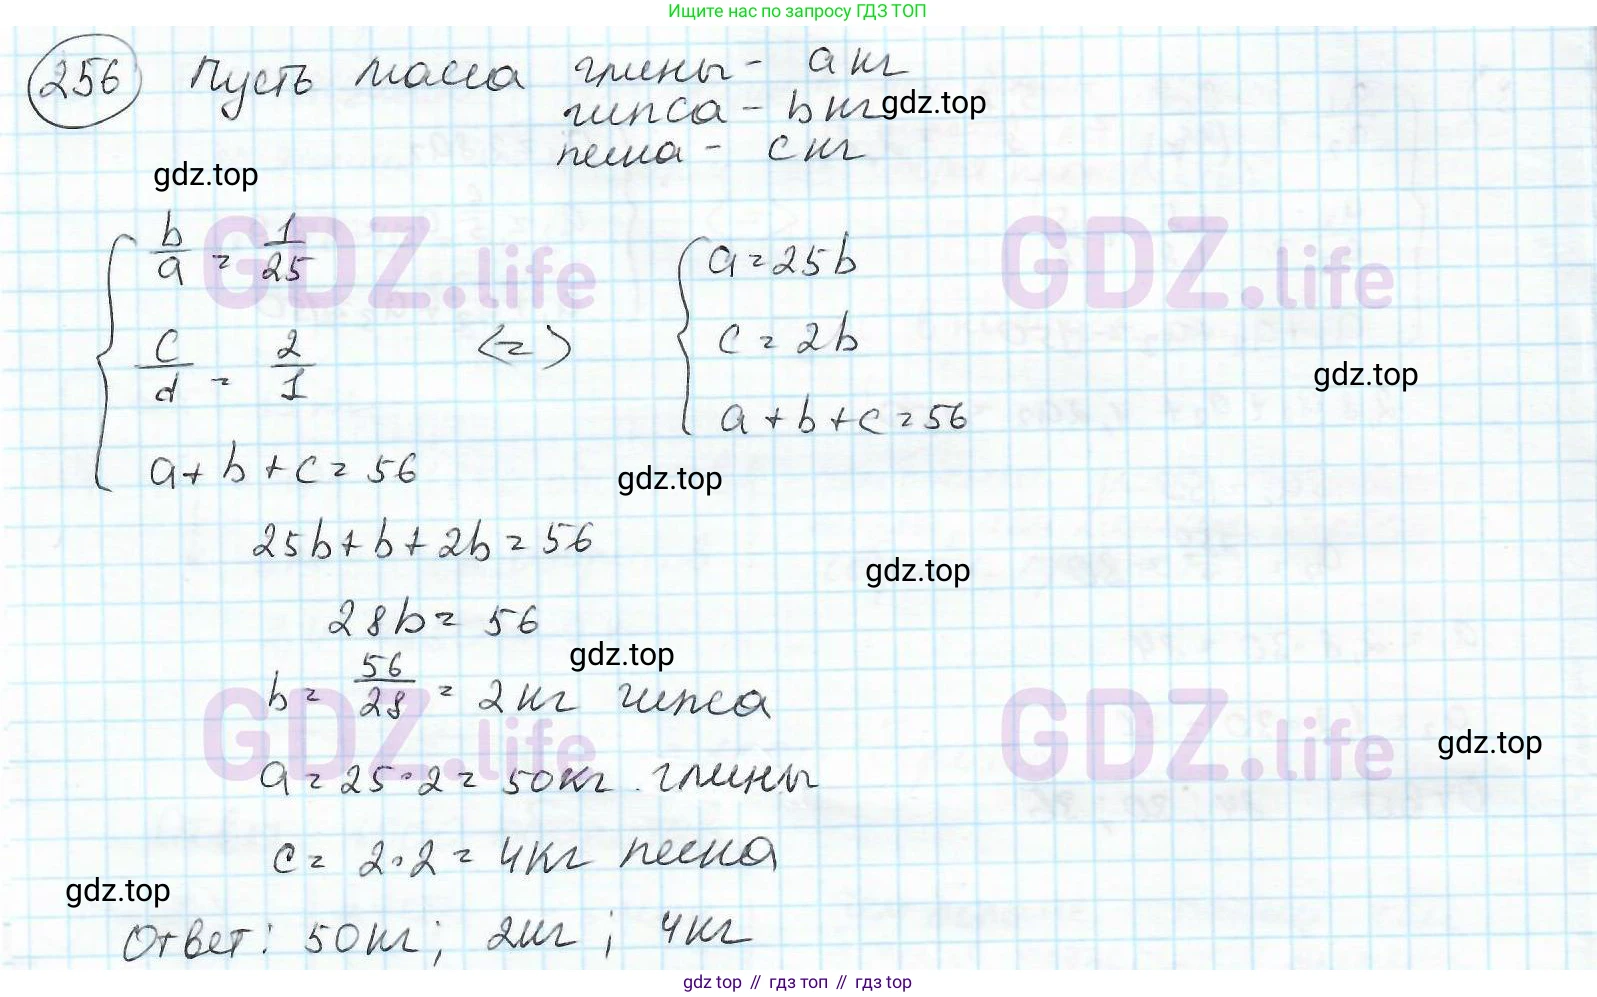 Ищите нас по запросу ГДЗ ТОП
256 Пусть масса глины - a кг
гипса - b кг
gdz.top
песка - c кг
gdz.top
GDZ.life
GDZ.life
b/a = 1/25
a = 25b
c/d = 2/1
<=>
c = 2b
gdz.top
a + b + c = 56
a + b + c = 56
gdz.top
25b + b + 2b = 56
gdz.top
28b = 56
gdz.top
b = 56/28 = 2 кг гипса
GDZ.life
GDZ.life
gdz.top
a = 25·2 = 50 кг глины
c = 2·2 = 4 кг песка
gdz.top
Ответ: 50 кг; 2 кг; 4 кг
gdz top // гдз топ // гдз top